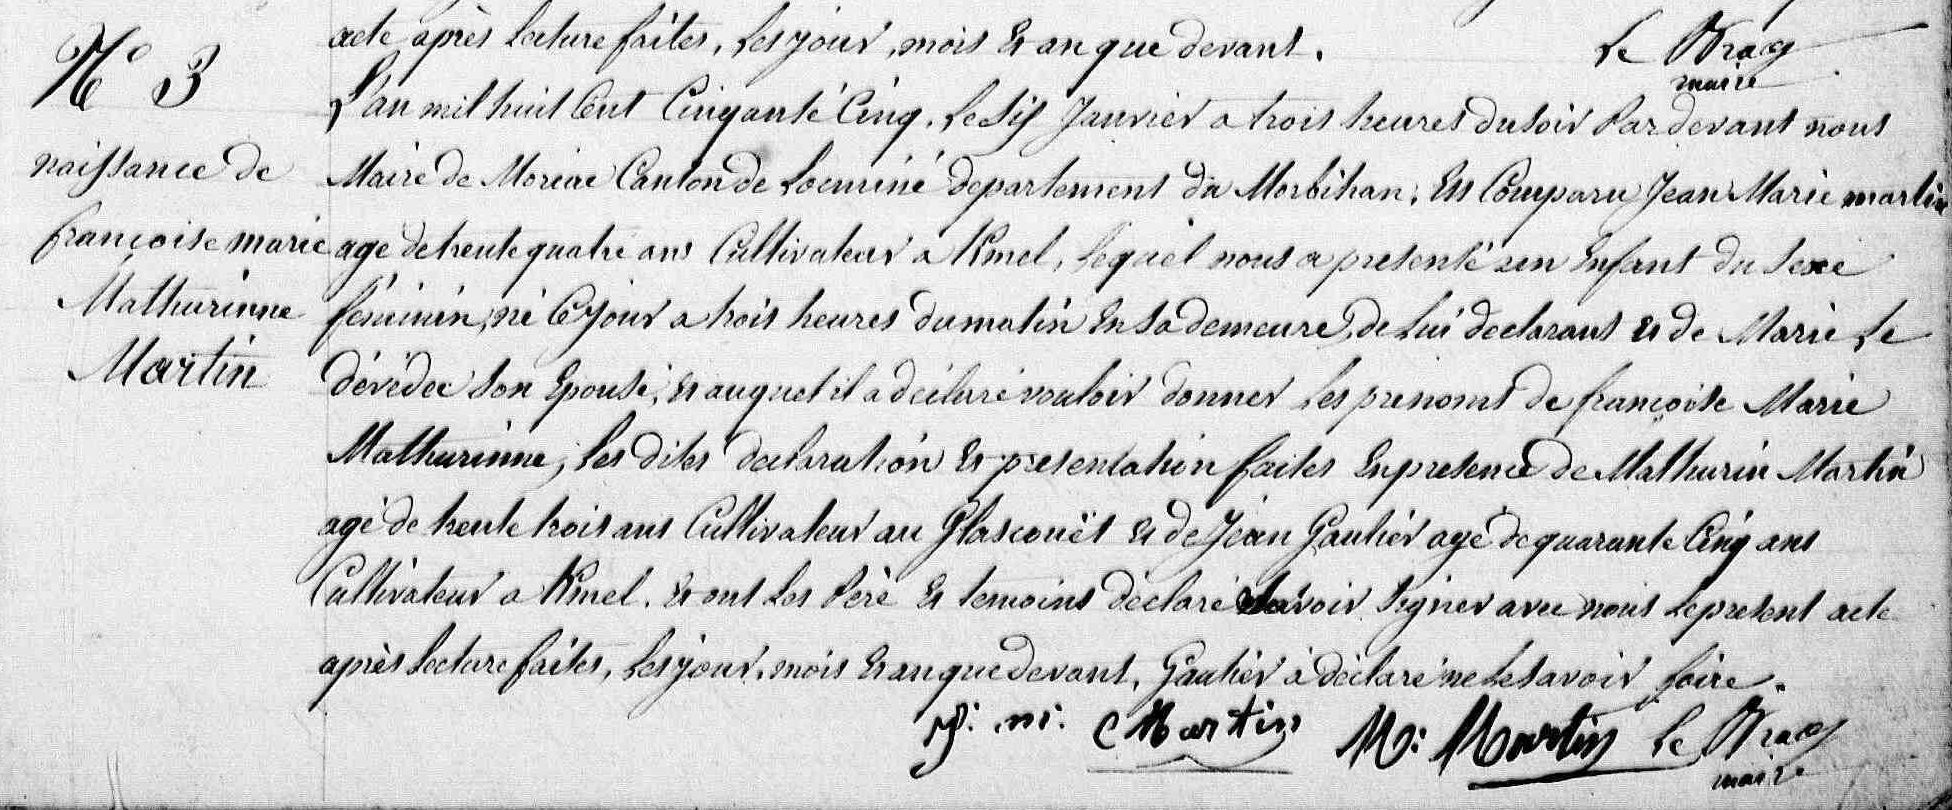 acte après lecture faites, les jour, mois et an que devant.
Le
maire
N° 3
naissance de
françoise marie
Mathurinne
Martin
L'an mil huit Cent Cinquanté Cinq, le six Janvier a trois heures du soir Par devant nous
Maire de Moréac Canton de Locminé departement du Morbihan, Est Comparu Jean Marie martin
age de trente quatre ans Cultivateur a Kmel, lequel nous a presenté un Enfant du sexe
féminin, né Ce jour a trois heures du matin En sa demeure, de lui declarant et de Marie Le
dévédec son Epouse, et auquel il a déclaré vouloir donner les prenoms de françoise Marie
Mathurinne, les dites declaration et presentation faites En presence de Mathurin Martin
agé de trente trois ans Cultivateur au Glascouët et de Jean Gautier agé de quarante Cinq ans
Cultivateur a Kmel. et ont les Père et temoins déclaré savoir signer avec nous le present acte
après lecture faites, les jour, mois et an que devant, Gautier à déclaré ne le savoir faire.
J. m. Martin M: Martin Le
maire